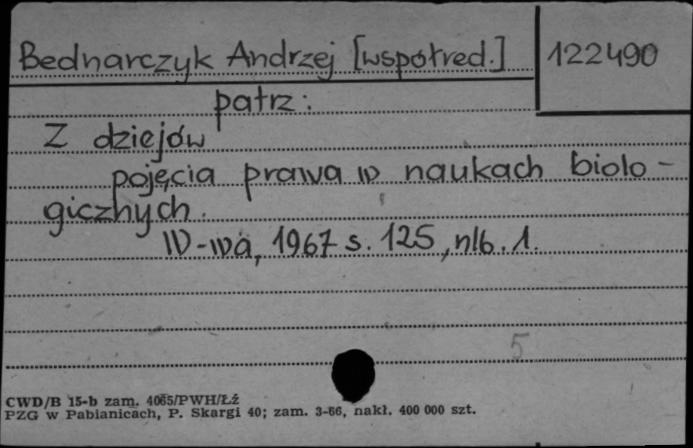 Bednarczyk Andrzej [współred.] 122490
patrz:
Z dziejów
pojęcia prawa w naukach biolo-
gicznych.
W-wa, 1967 s. 125, nlb. 1.
5
CWD/B 15-b zam. 4065/PWH/Łź
PZG w Pabianicach, P. Skargi 40; zam. 3-66, nakł. 400 000 szt.